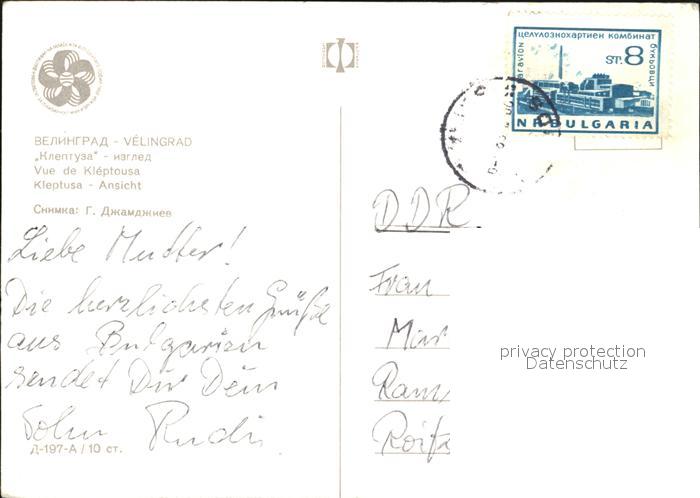 ВЕЛИНГРАД - VÉLINGRAD
„Клептуза" - изглед
Vue de Kléptousa
Kleptusa - Ansicht
Снимка: Г. Джамджиев
Liebe Mutter!
Die herzlichsten Grüße
aus Bulgarien
sendet Dir Dein
Sohn Rudi.
Д-197-А / 10 ст.
целулознохартиен комбинат
букьовци
par avion
ST. 8
NR BULGARIA
DDR
Frau
Mar
Ram
privacy protection
Datenschutz